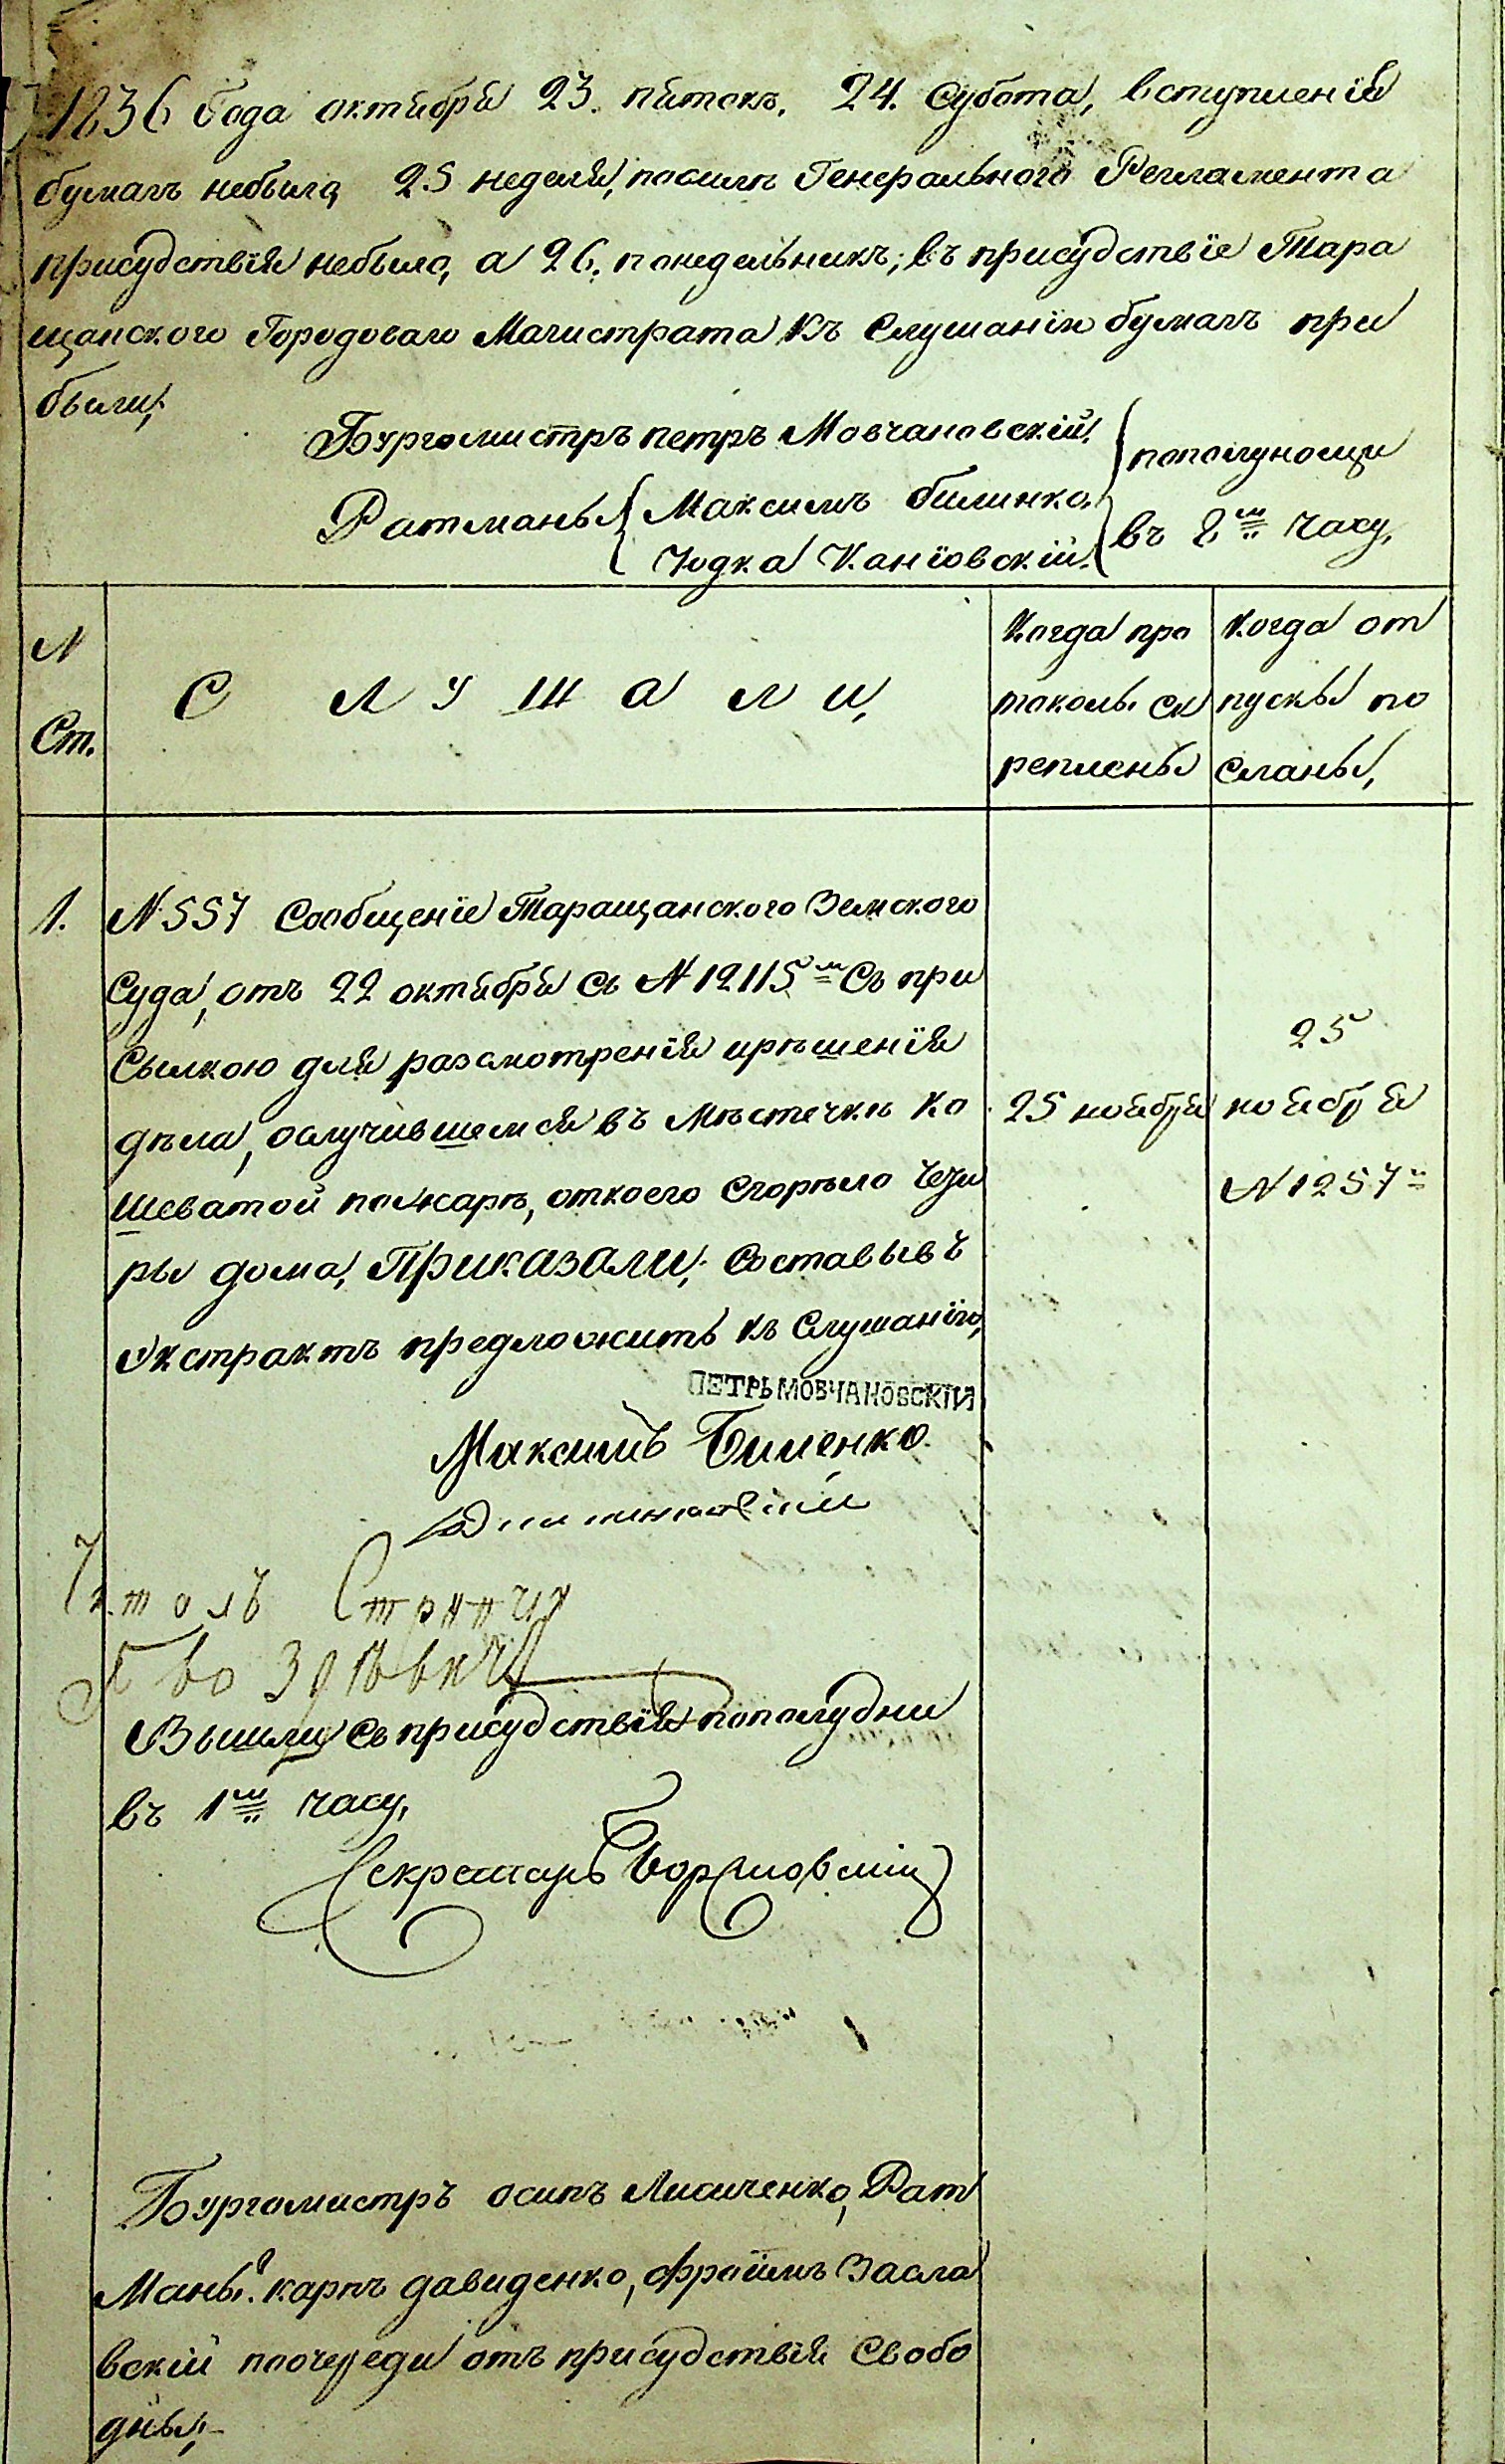 1836 Года октября 23. пятокъ, 24. Субота, вступленія
бумагъ небыло, 25 неделя, посилѣ Генерального Регламента
присудствія небыло, а 26. понедельникъ; въ присудствіе Тара
щанского Городоваго Магистрата къ Слушанію бумагъ при
были,
Бургомистръ петръ Мовчановскій,
пополуночи
Ратманы Максимъ билинко,
въ 8м часу,
Іодка Каніовскій.
N Ст.
Слушали,
Когда про
токолы ск
реплены
Когда от
пуски по
сланы,
1. N 557 Сообщеніе Таращанского Земского
Суда, отъ 22 октября съ N 12115м Съ при
Сылкою для разсмотренія ирѣшенія
дѣла, ослучившемся въ Мѣстечкѣ Ко
шеватой пожарѣ, откоего сгорѣло Четы
ры дома, Приказали; Составывъ
экстрактъ предложить къ Слушанію,
25 ноября
25
ноября
N 1257
ПЕТРЪ МОВЧАНОВСКІЙ
Максимъ Биленко.
Читалъ Стряпчи
Вышли съ присудствія пополудни
въ 1м часу,
Секретарь
Бургомистръ осипъ Лисиченко, Рат
Маны: карпъ давиденко, Фроимъ Засла
вскій поочереди отъ присудствія Свобо
дны;